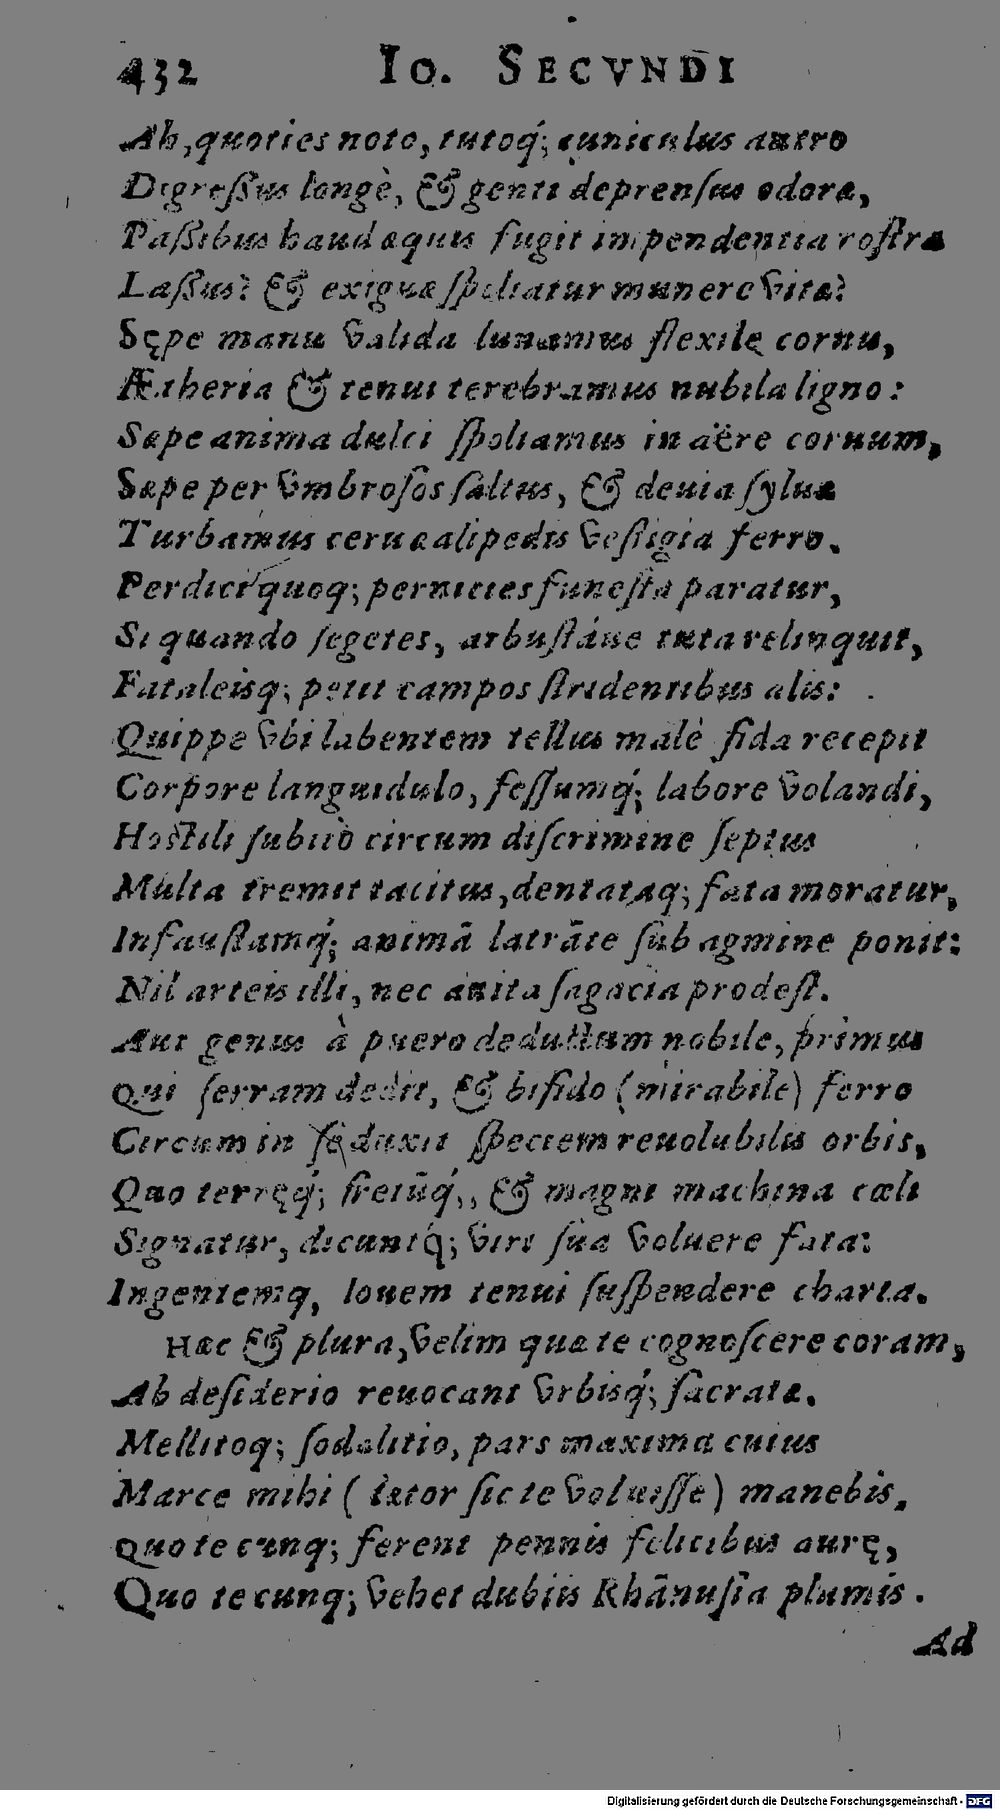 432 Io. SECVNDI
Ah, quoties noto, tutoq́; cuniculus antro
Digreſſus longè, & genti deprenſus odoræ,
Paſſibus haud æquis fugit impendentia roſtra
Laſſus? & exiguæ ſpoliatur munere vitæ?
Sępe manu valida lunamus flexile cornu,
Ætheria & tenui terebramus nubila ligno:
Sæpe anima dulci ſpoliamus in aëre cornum,
Sæpe per vmbroſos ſaltus, & deuia ſyluæ
Turbamus cerua alipedis veſtigia ferro.
Perdici quoq; pernicies funeſta paratur,
Si quando ſegetes, arbuſtáue tuta relinquit,
Fataleisq; petit campos ſtridentibus alis:
Quippe vbi labentem tellus malè fida recepit
Corpore languidulo, feſſumq́; labore volandi,
Hoſtili ſubitò circum diſcrimine ſeptus
Multa tremit tacitus, dentataq; fata moratur,
Infauſtamq́; animā latrāte ſub agmine ponit:
Nil arteis illi, nec auita ſagacia prodeſt.
Aut genus à puero deductum nobile, primus
Qui ſerram dedit, & bifido (mirabile) ferro
Circum in ſe duxit ſpeciem reuolubilis orbis,
Quo terręq́; fretūq́;, & magni machina cœli
Signatur, dicuntq́; viri ſua voluere fata:
Ingentemq, Iouem tenui ſuſpendere charta.
Hæc & plura, velim quæ te cognoſcere coram,
Ab deſiderio reuocant vrbisq́; ſacratæ.
Mellitoq; ſodalitio, pars maxima cuius
Marce mihi (tætor ſic te voluiſſe) manebis,
Quo te cunq; ferent pennis felicibus aurę,
Quo te cunq; vehet dubijs Rhānuſia plumis.
Ad
Digitalisierung gefördert durch die Deutsche Forschungsgemeinschaft - DFG